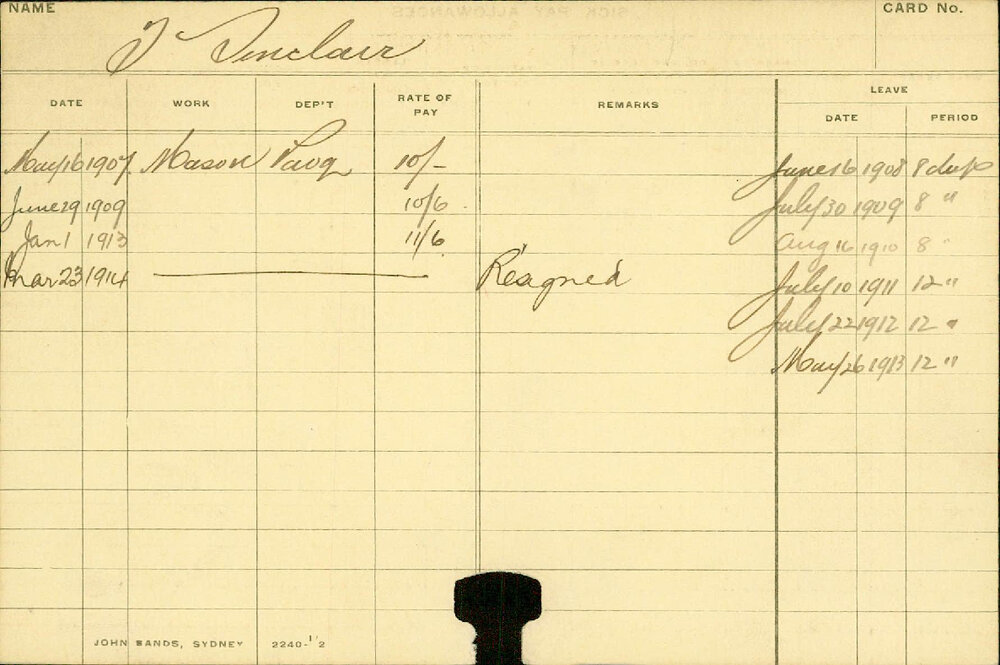 NAME CARD No.
Sinclair
LEAVE
DATE WORK DEP'T RATE OF PAY REMARKS DATE PERIOD
May 16 1907 Mason 10/- June 16 1908 8 days
June 29 1909 10/6 July 30 1909 8 "
Jan 1 1913 11/6 Aug 16 1910 8 "
Mar 23 1914 Resigned July 10 1911 12 "
July 22 1912 12 "
May 26 1913 12 "
JOHN SANDS, SYDNEY 2240-1/2